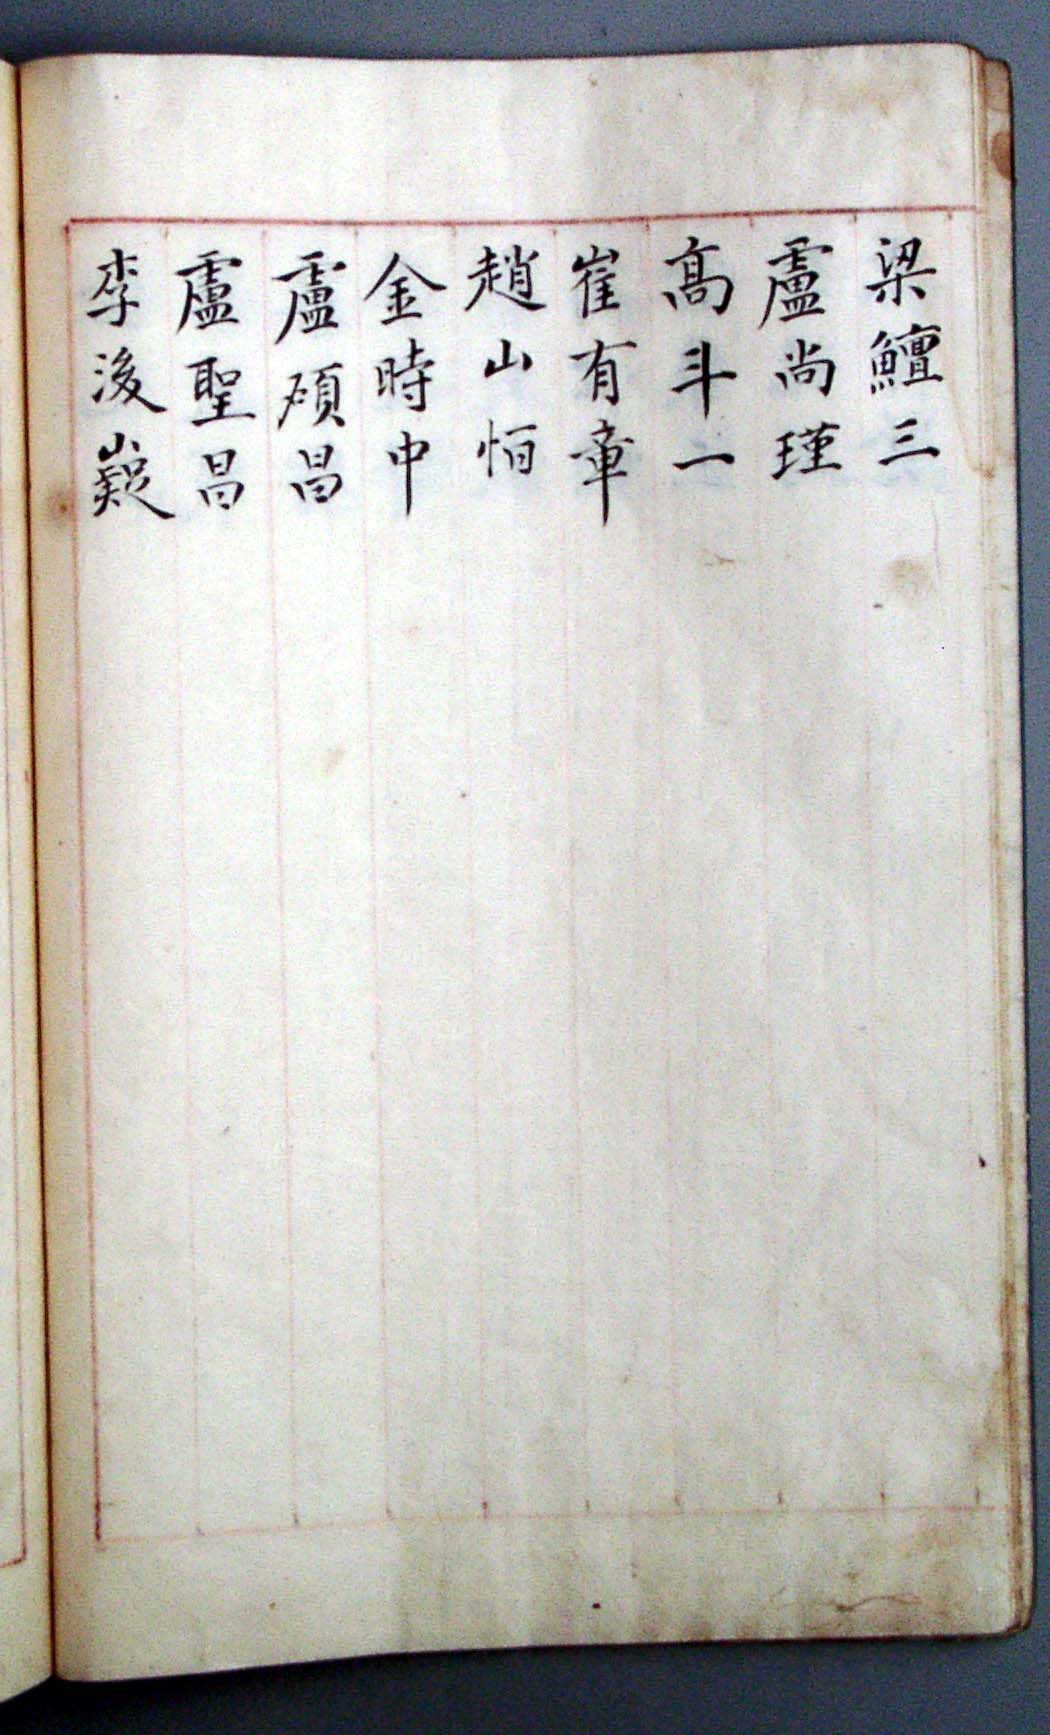 梁鱣三
盧尚瑾
高斗一
崔有章
趙山恒
金時中
盧碩昌
盧聖昌
李後嶷